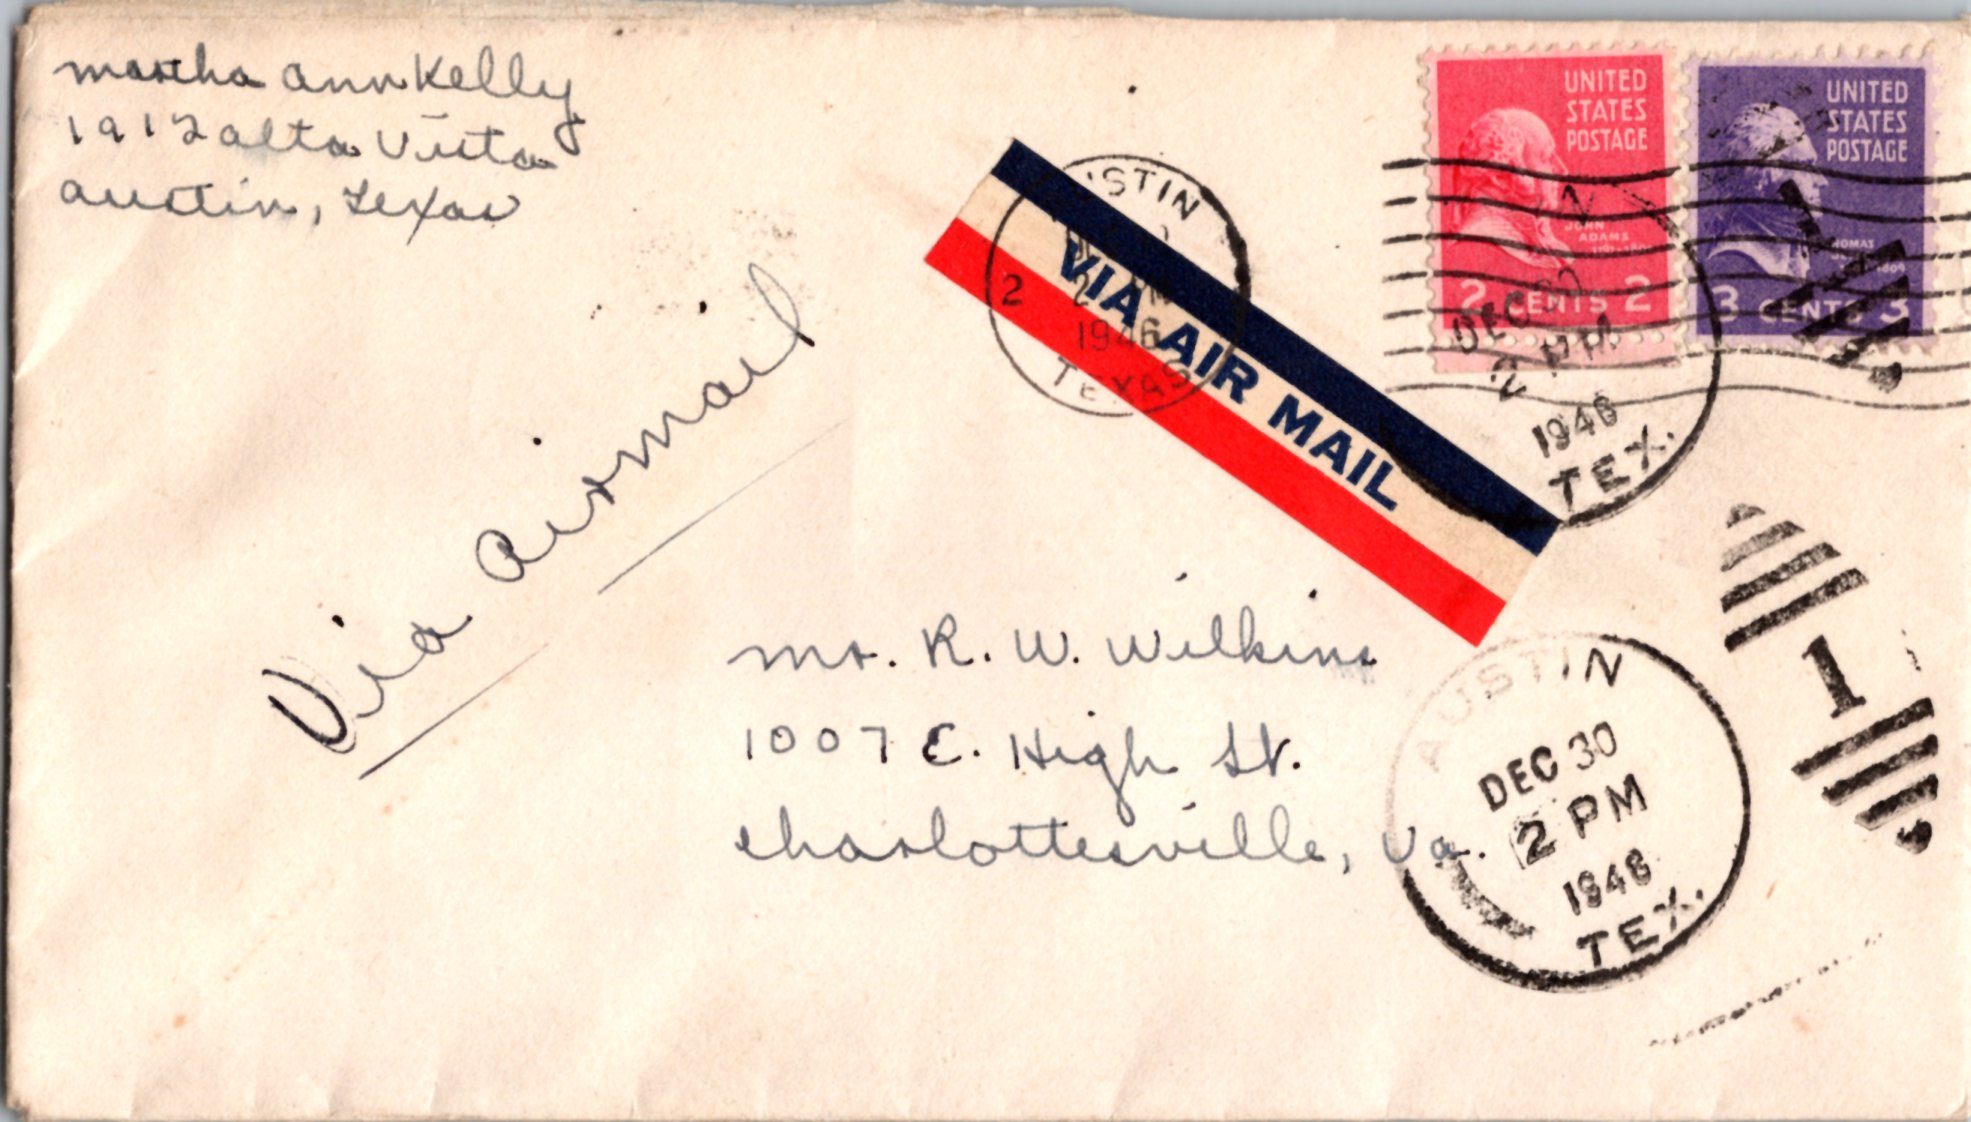 martha ann Kelly
1912 alta Vista
austin, Texas
Via airmail
USTIN
2
1946
TEXAS
VIA AIR MAIL
UNITED
STATES
POSTAGE
JOHN
ADAMS
2 CENTS 2
UNITED
STATES
POSTAGE
THOMAS
3 CENTS 3
N
DEC 30
2 PM
1946
TEX.
mr. R. W. Wilkins
1007 E. High St.
charlottesville, Va.
AUSTIN
DEC 30
2 PM
1946
TEX.
1